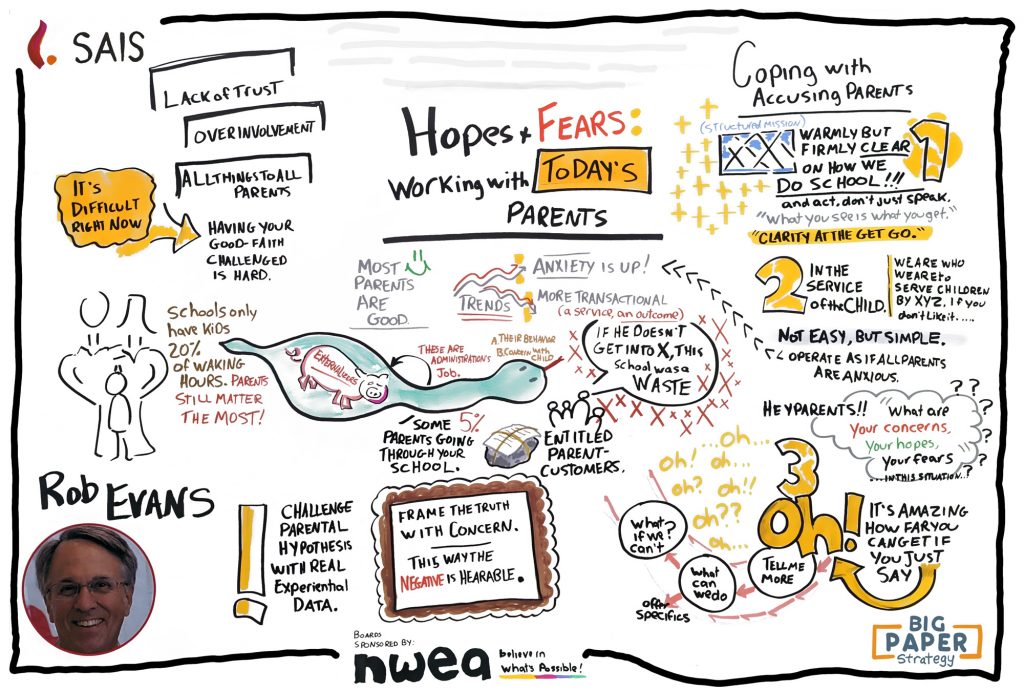 SAIS
LACK OF TRUST
OVER INVOLVEMENT
ALL THINGS TO ALL
PARENTS
IT'S
DIFFICULT
RIGHT NOW
HAVING YOUR
GOOD-FAITH
CHALLENGED
IS HARD.
HOPES + FEARS:
WORKING WITH TODAY'S
PARENTS
MOST
PARENTS
ARE
GOOD.
TRENDS
ANXIETY IS UP!
MORE TRANSACTIONAL
(a service, an outcome)
Schools only
have kids
20%
of WAKING
HOURS. PARENTS
STILL MATTER
THE MOST!
EXTERNALIZERS
THESE ARE
ADMINISTRATION'S
JOB.
A. THEIR BEHAVIOR
B. CONCERN with
CHILD
IF HE DOESN'T
GET INTO X, THIS
SCHOOL WAS A
WASTE
SOME 5%
PARENTS GOING
THROUGH YOUR
SCHOOL.
ENTITLED
PARENT-
CUSTOMERS.
ROB EVANS
CHALLENGE
PARENTAL
HYPOTHESIS
WITH REAL
Experiential
DATA.
FRAME THE TRUTH
WITH CONCERN.
THIS WAY THE
NEGATIVE IS HEARABLE.
Coping with
ACCUSING PARENTS
(STRUCTURED MISSION)
1
WARMLY BUT
FIRMLY CLEAR
ON HOW WE
DO SCHOOL!!!
and act, don't just speak.
"What you see is what you get."
"CLARITY AT THE GET GO."
2
IN THE
SERVICE
of the CHILD.
WE ARE WHO
WE ARE to
SERVE CHILDREN
BY XYZ, IF you
don't like it.....
NOT EASY, BUT SIMPLE.
OPERATE AS IF ALL PARENTS
ARE ANXIOUS.
HEY PARENTS!!
What are
your concerns,
your hopes,
your fears
... IN THIS SITUATION..?
? ? ? ? ?
3
Oh!
...oh...
oh! oh...
oh? oh!!
oh??
oh...
IT'S AMAZING
HOW FAR YOU
CAN GET IF
YOU JUST
SAY
TELL ME
MORE
What
can
we do
What
if we?
can't
offer
specifics
BOARDS
SPONSORED BY:
nwea
believe in
What's Possible!
BIG
PAPER
strategy